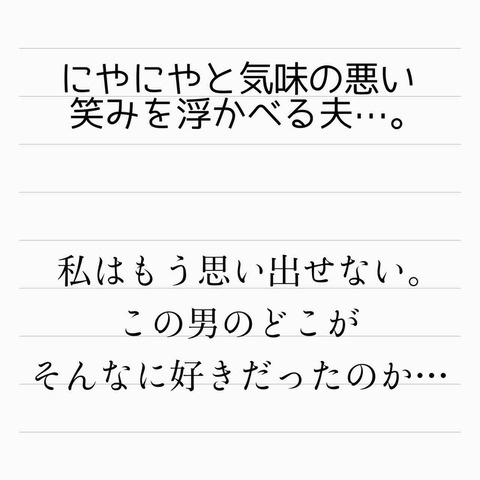 にやにやと気味の悪い
笑みを浮かべる夫…。
私はもう思い出せない。
この男のどこが
そんなに好きだったのか…